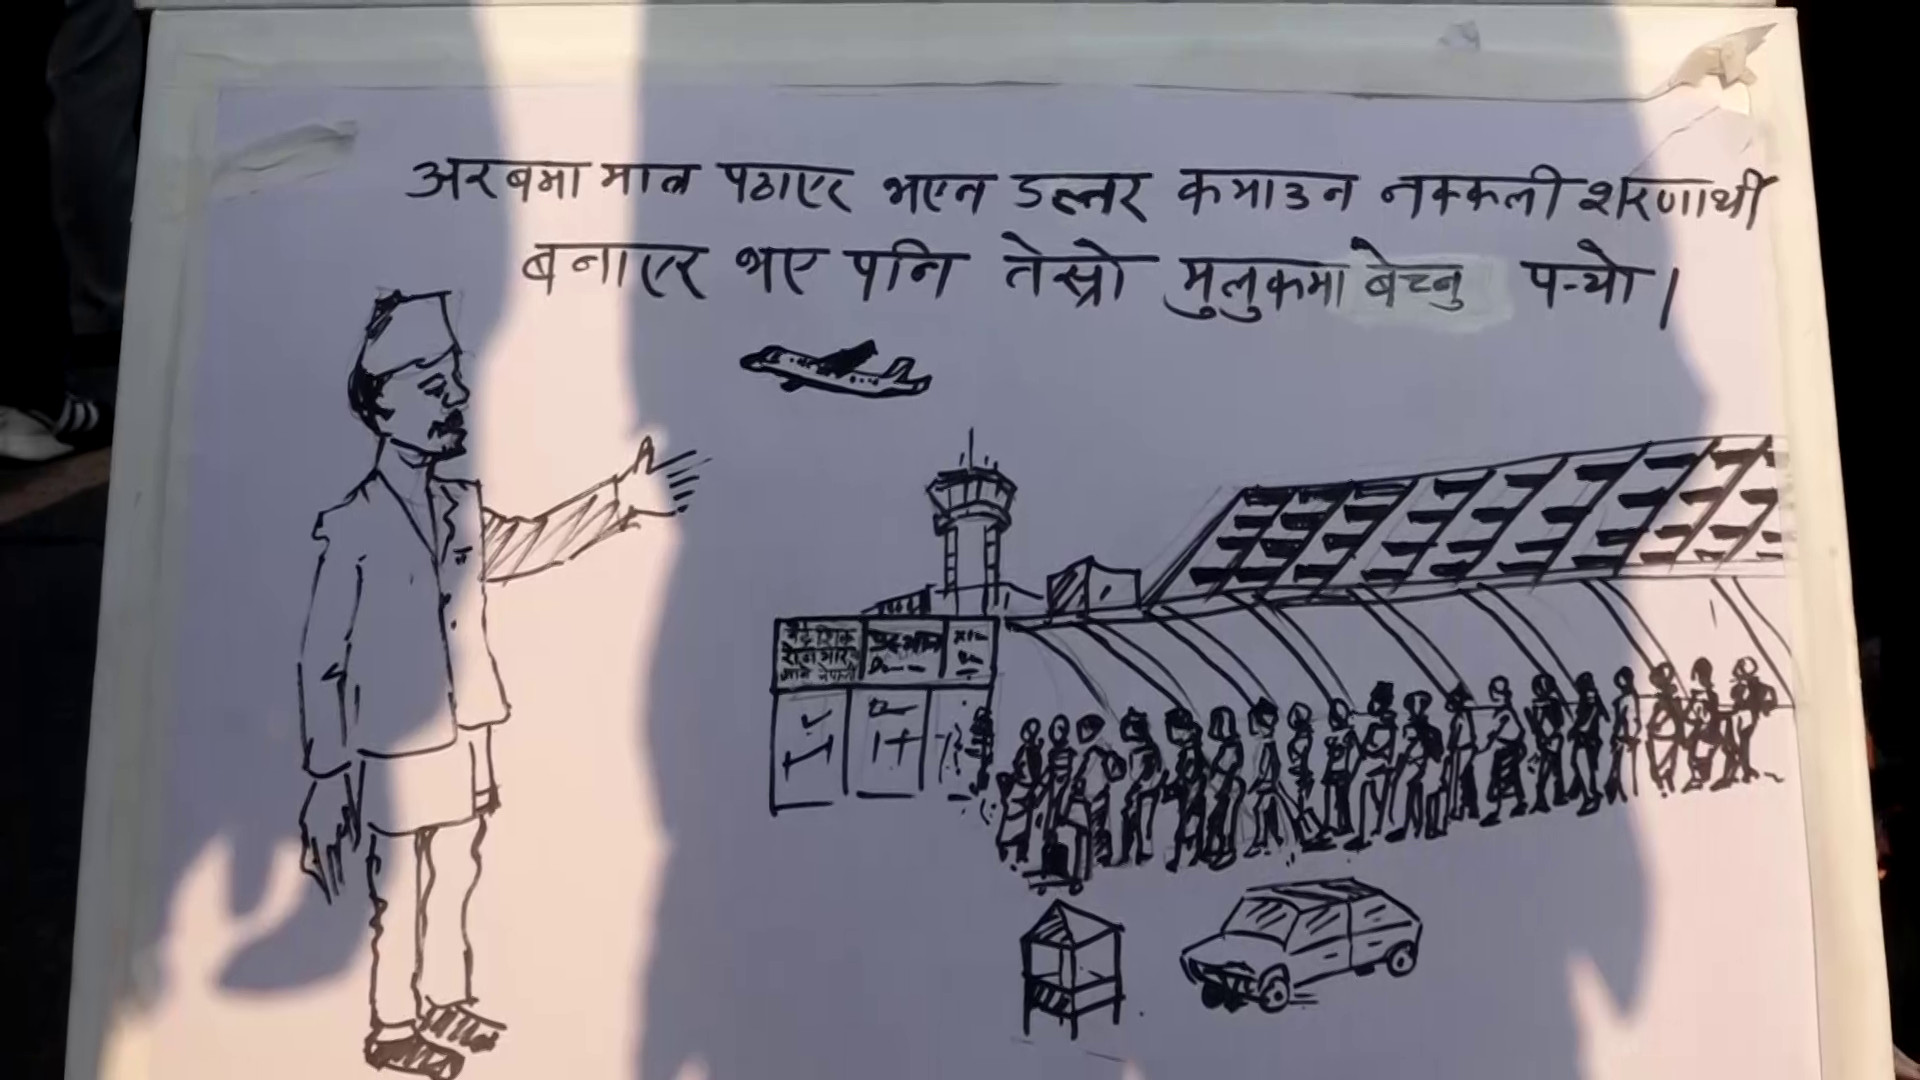 अरबमा मात्र पठाएर भएन डलर कमाउन नक्कली शरणार्थी
बनाएर भए पनि तेस्रो मुलुकमा बेच्नु पर्‍यो।